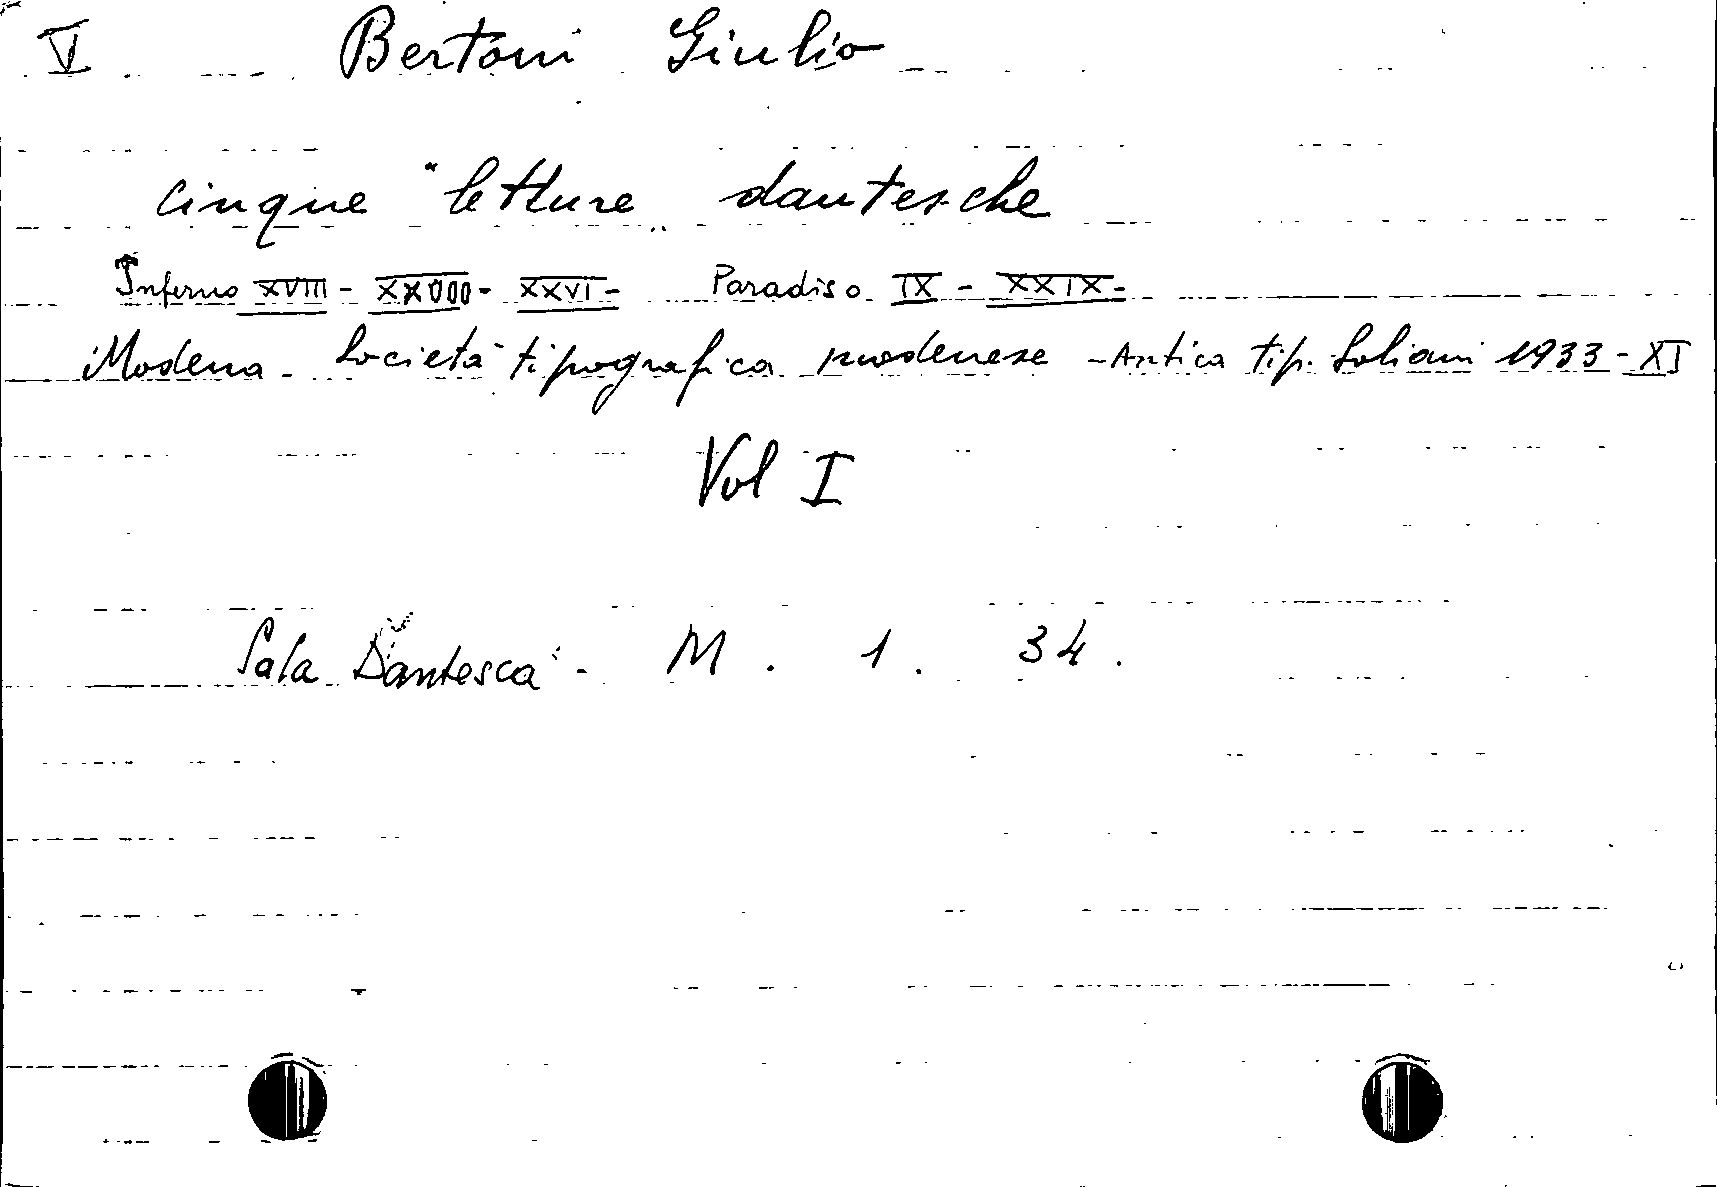 V Bertoni Giulio
Cinque "letture" dantesche
Inferno XVIII - XXVIII - XXVI - Paradiso IX - XXIX -
Modena - Società tipografica modenese - Antica tip. Soliani 1933 - XI
Vol I
Sala Dantesca - M. 1. 34.